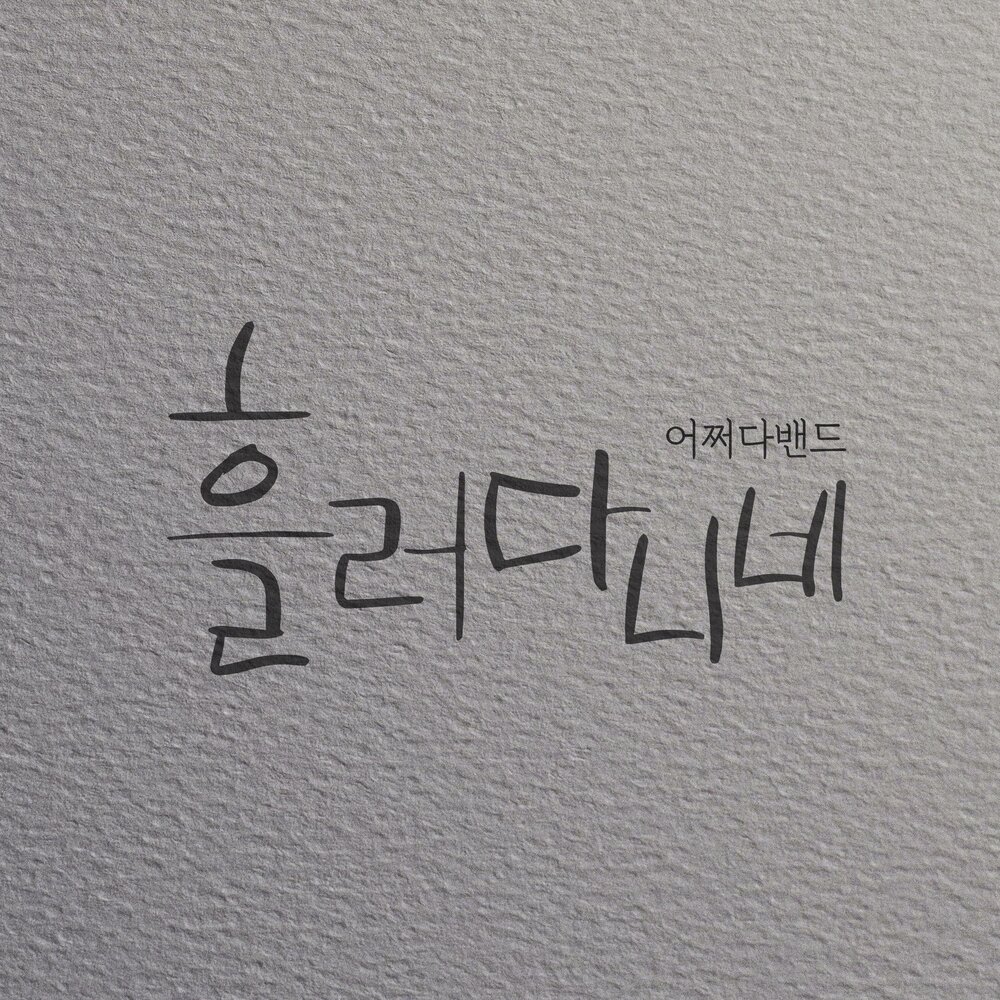 어쩌다밴드
흘러다니네